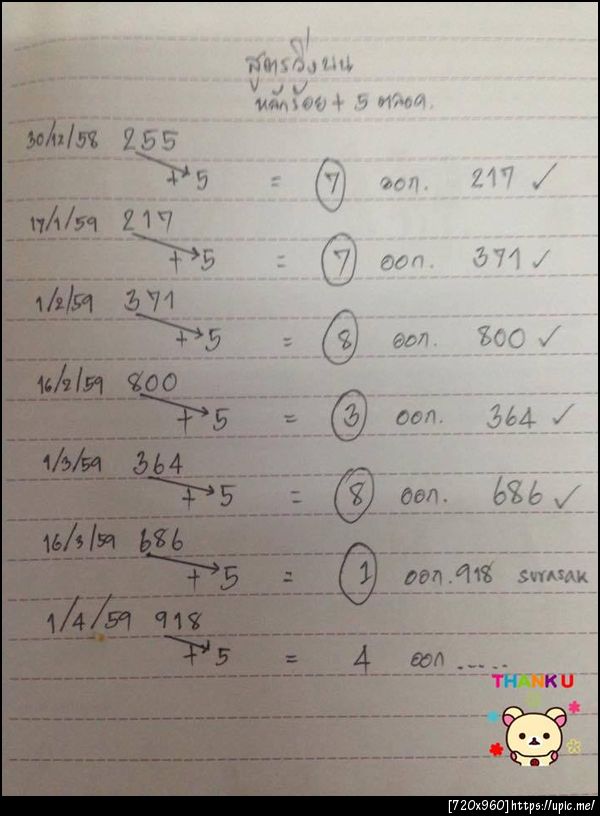 สูตรวิ่งบน
หลักร้อย + 5 ตลอด.
30/12/58 255
+ 5 = 7 ออก. 217 ✓
17/1/59 217
+ 5 = 7 ออก. 371 ✓
1/2/59 371
+ 5 = 8 ออก. 800 ✓
16/2/59 800
+ 5 = 3 ออก. 364 ✓
1/3/59 364
+ 5 = 8 ออก. 686 ✓
16/3/59 686
+ 5 = 1 ออก. 918 surasak
1/4/59 918
+ 5 = 4 ออก .....
THANK U
[720x960] https://upic.me/